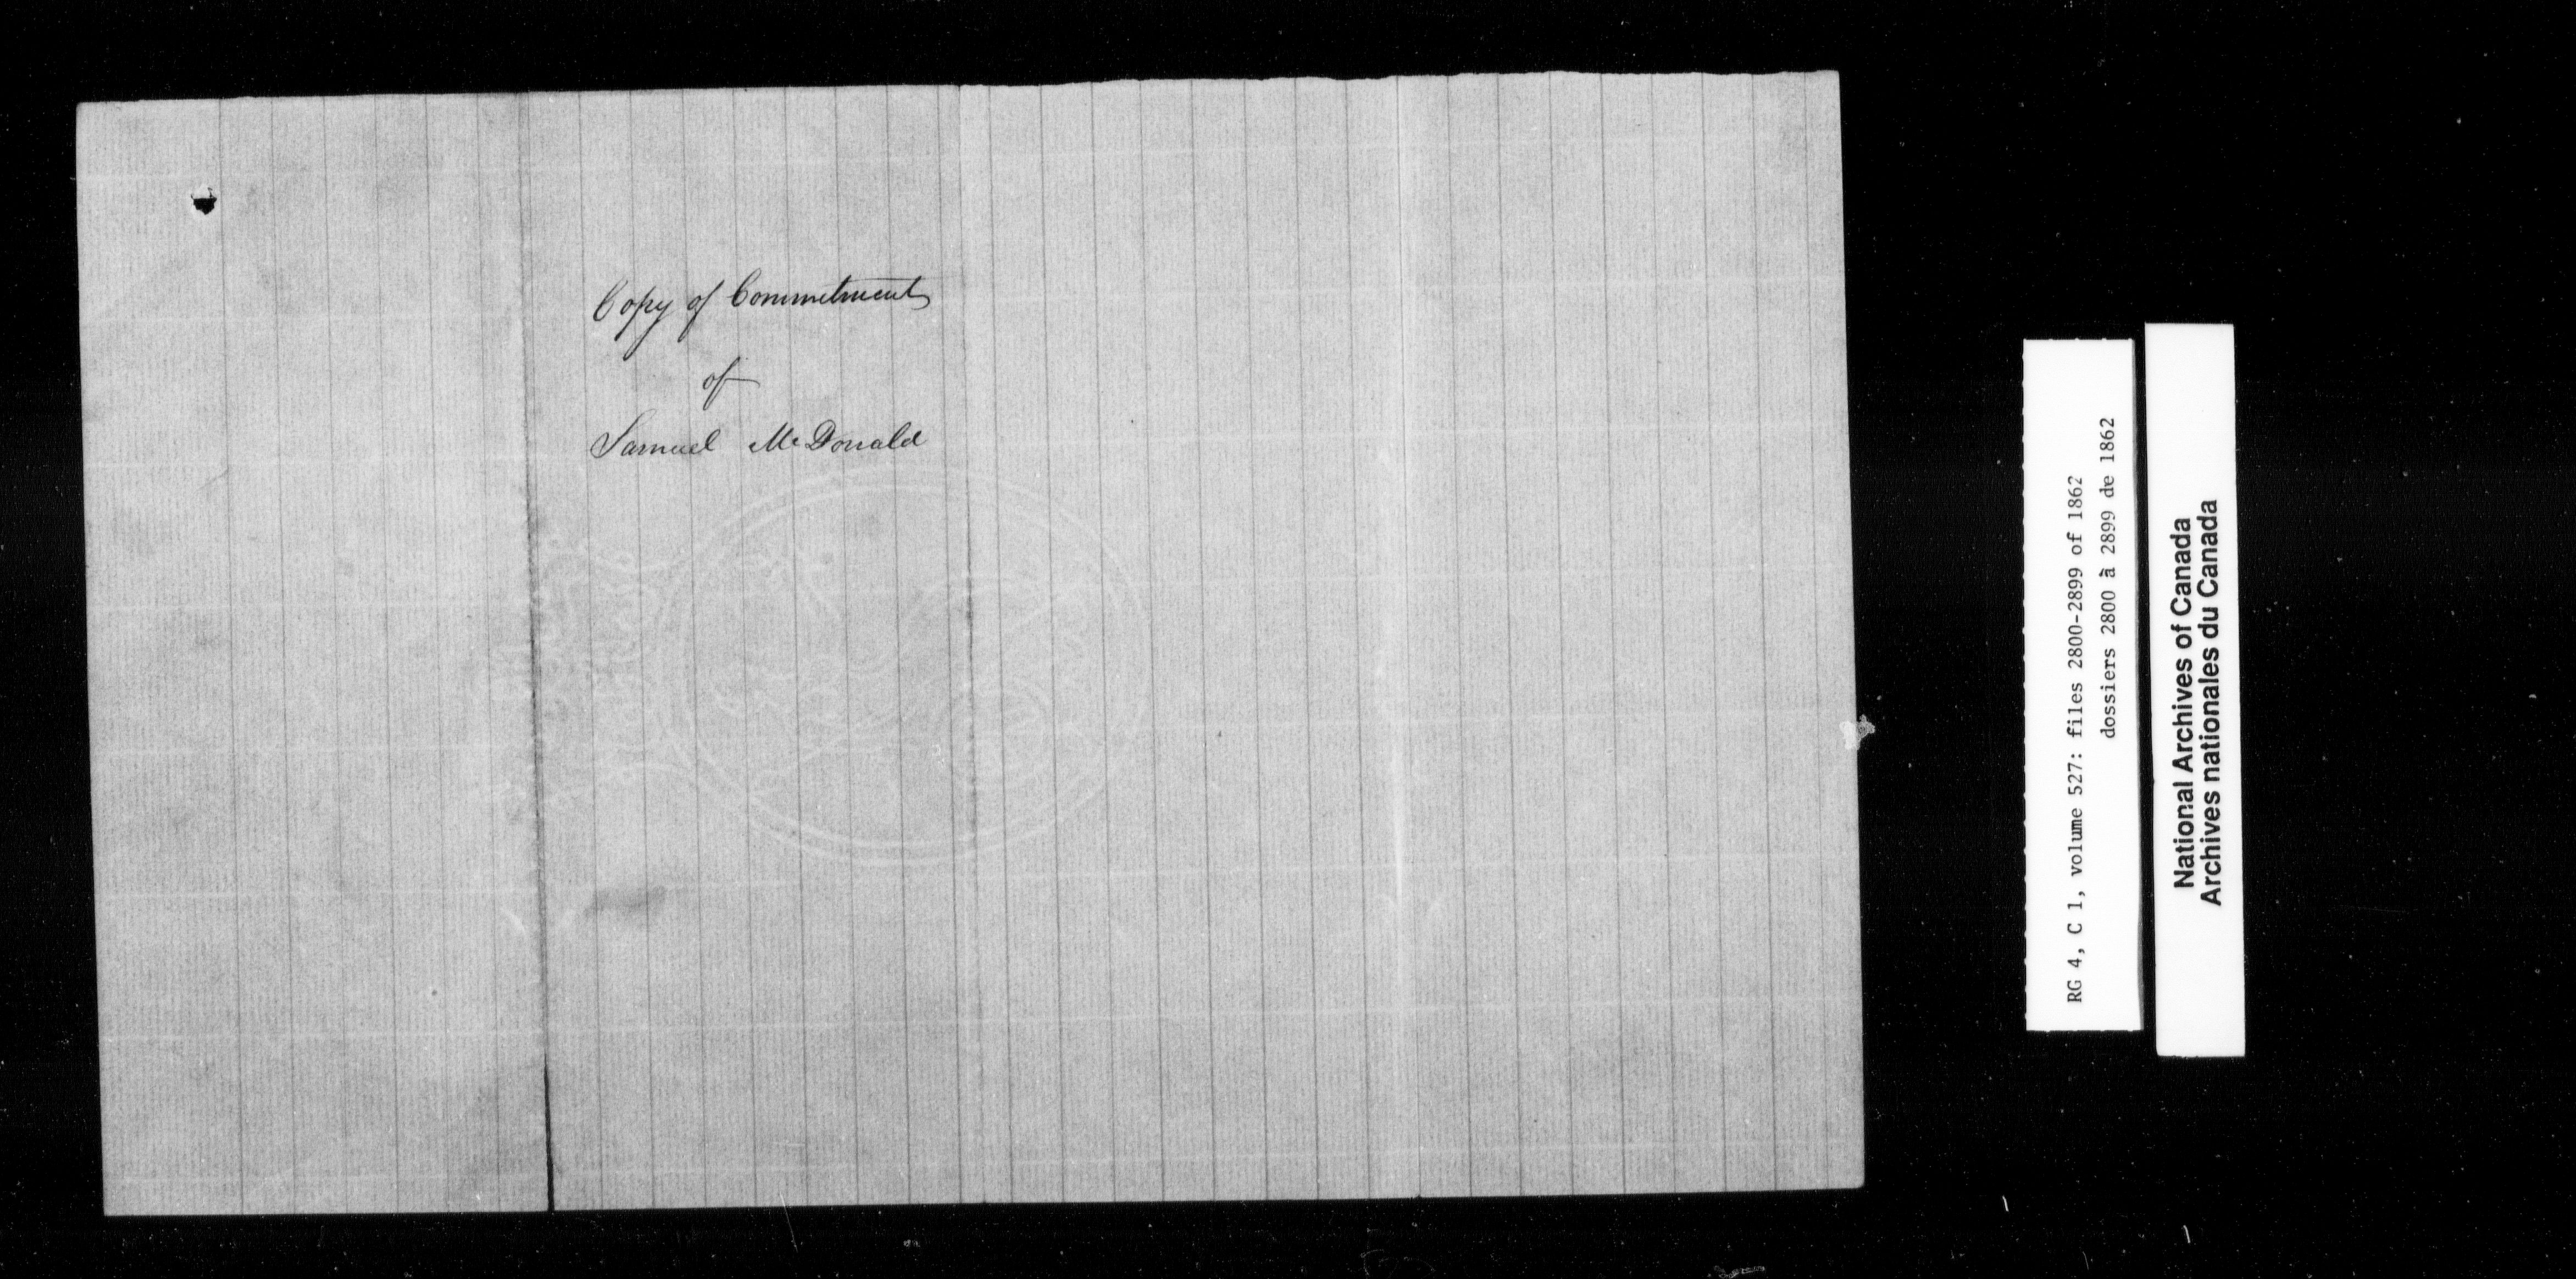 Copy of Commitment
of
Samuel McDonald
RG 4, C 1, volume 527: files 2800-2899 of 1862
dossiers 2800 à 2899 de 1862
National Archives of Canada
Archives nationales du Canada